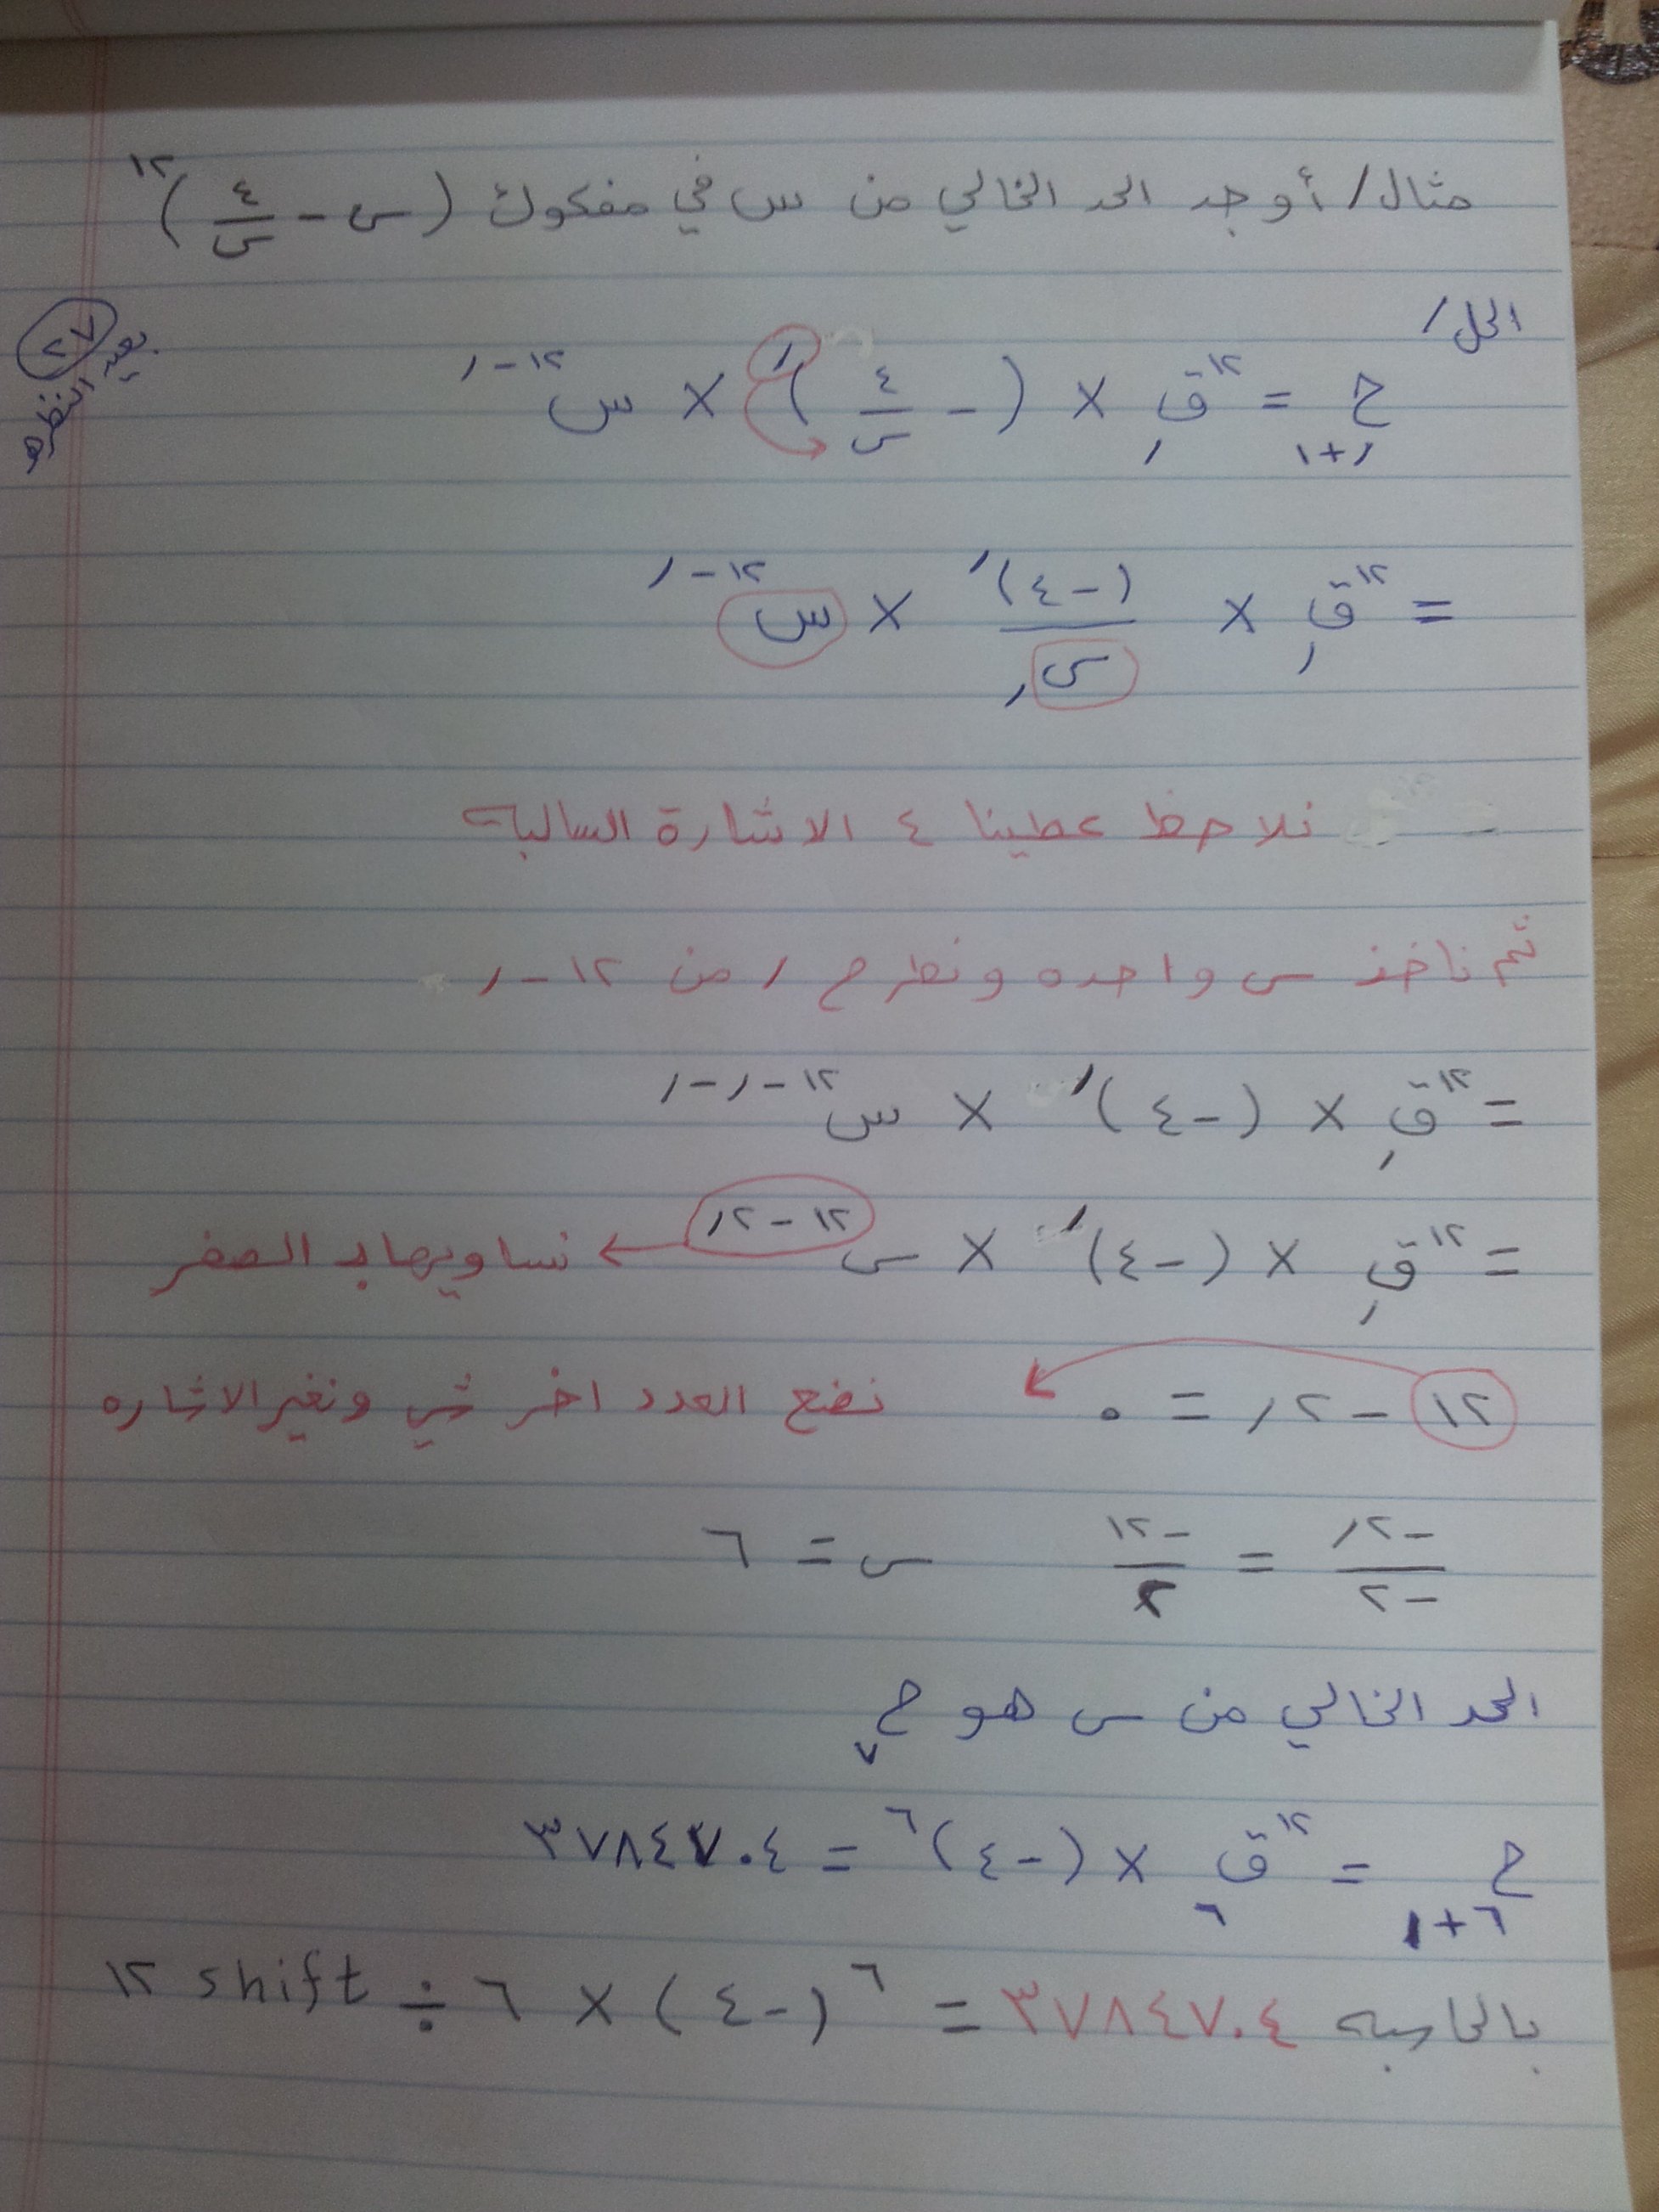 مثال/ أوجد الحد الخالي من س في مفكوك (س - ٤/س)^١٢
الحل/
ح ر+١ = ١٢ ق ر × (- ٤/س)^ر × س^١٢-ر
٢٧
= ١٢ ق ر × (-٤)^ر / س^ر × س^١٢-ر
نلاحظ عطينا ٤ الاشارة السالبه
ثم ناخذ س واحده ونطرح ر من ١٢-ر
= ١٢ ق ر × (-٤)^ر × س^١٢-ر-ر
= ١٢ ق ر × (-٤)^ر × س^١٢-٢ر ← نساويها بـ الصفر
١٢ - ٢ر = ٠ نضع العدد اخر شي ونغير الاشاره
-٢ر/-٢ = -١٢/٢ س = ٦
الحد الخالي من س هو ح٧
ح ٦+١ = ١٢ ق ٦ × (-٤)^٦ = ٣٧٨٤٧٠٤
بالحاسبه ٣٧٨٤٧٠٤ = ١٢ shift ÷ ٦ × (-٤)^٦